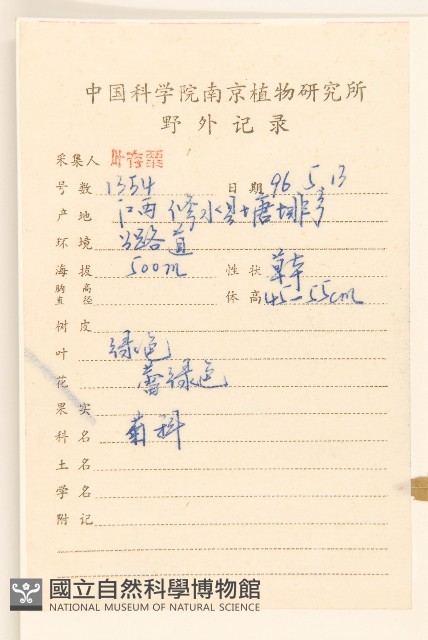 中国科学院南京植物研究所
野外记录
采集人 叶存粟
号数 1354 日期 96.5.13
产地 江西修水县塘排
环境 公路道
海拔 500m 性状 草本
胸高直径 体高 45—55cm
树皮
叶 绿色
花 蕾绿色
果实
科名 菊科
土名
学名
附记
國立自然科學博物館
NATIONAL MUSEUM OF NATURAL SCIENCE